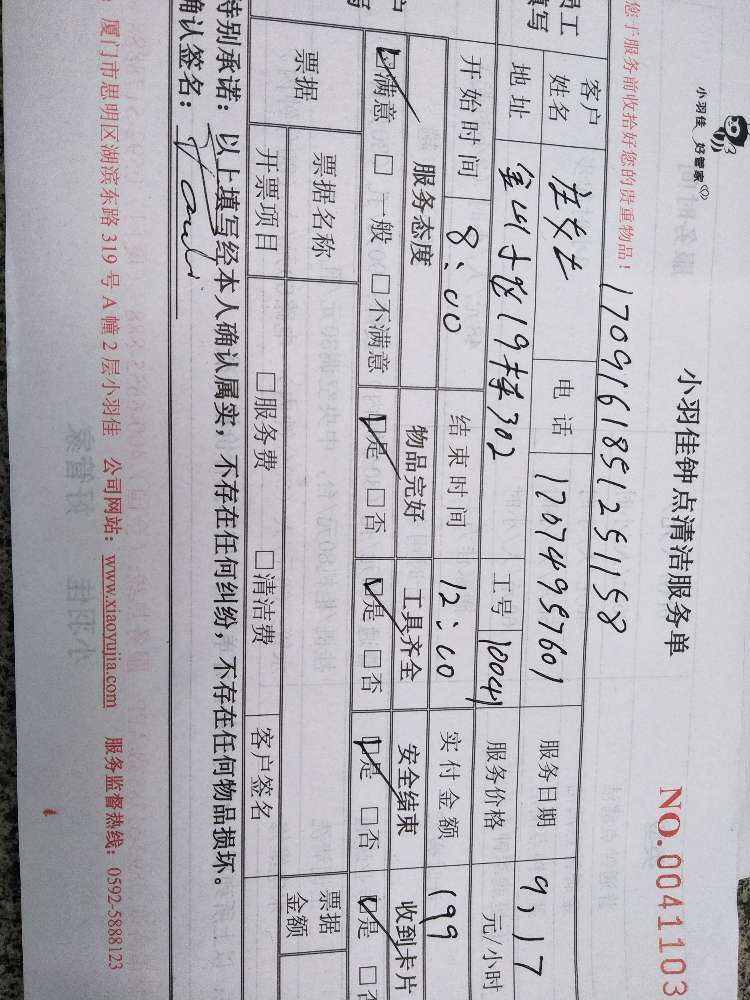 小羽佳 好管家
小羽佳钟点清洁服务单
NO.0041103
您于服务前收拾好您的贵重物品！
1709161851251158
员工
填写
客户
姓名
庄女士
电话
17074957601
服务日期
9.17
地址
19栋302
工号
10041
服务价格
元/小时
开始时间
8:00
结束时间
12:00
实付金额
199
服务态度
物品完好
工具齐全
安全结束
收到卡片
☑满意 □一般 □不满意
☑是 □否
☑是 □否
☑是 □否
☑是 □否
票据
票据名称
票据
金额
开票项目
□服务费
□清洁费
客户签名
特别承诺：以上填写经本人确认属实，不存在任何纠纷，不存在任何物品损坏。
确认签名：
厦门市思明区湖滨东路 319 号 A 幢 2 层小羽佳 公司网站：www.xiaoyujia.com 服务监督热线：0592-5888123